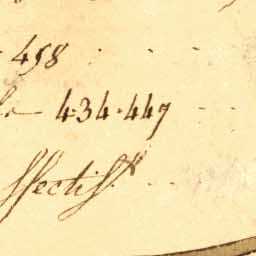 458
434.447
ffectifs